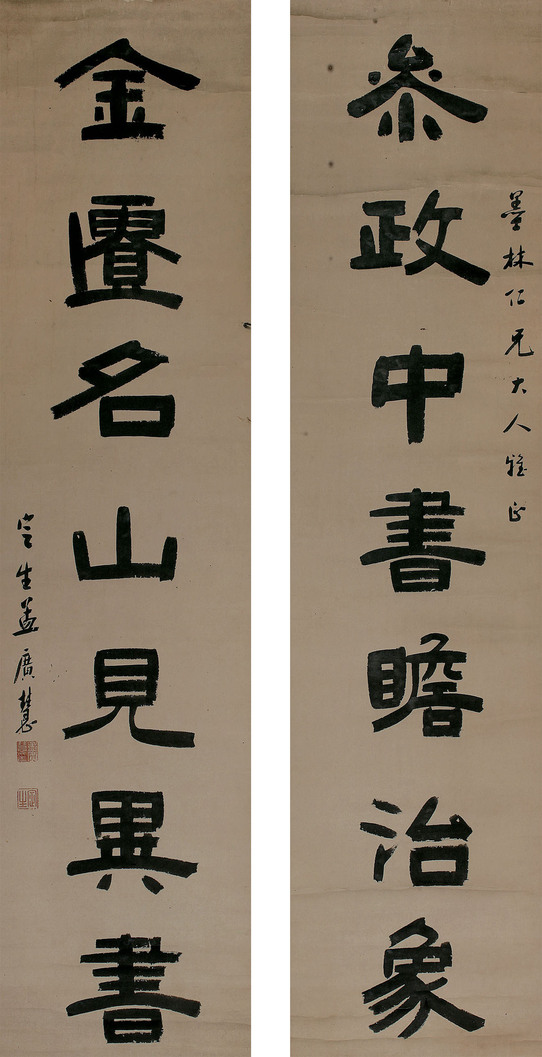 墨林仁兄大人雅正
參政中書瞻治象
金匱名山見異書
定生孟廣慧